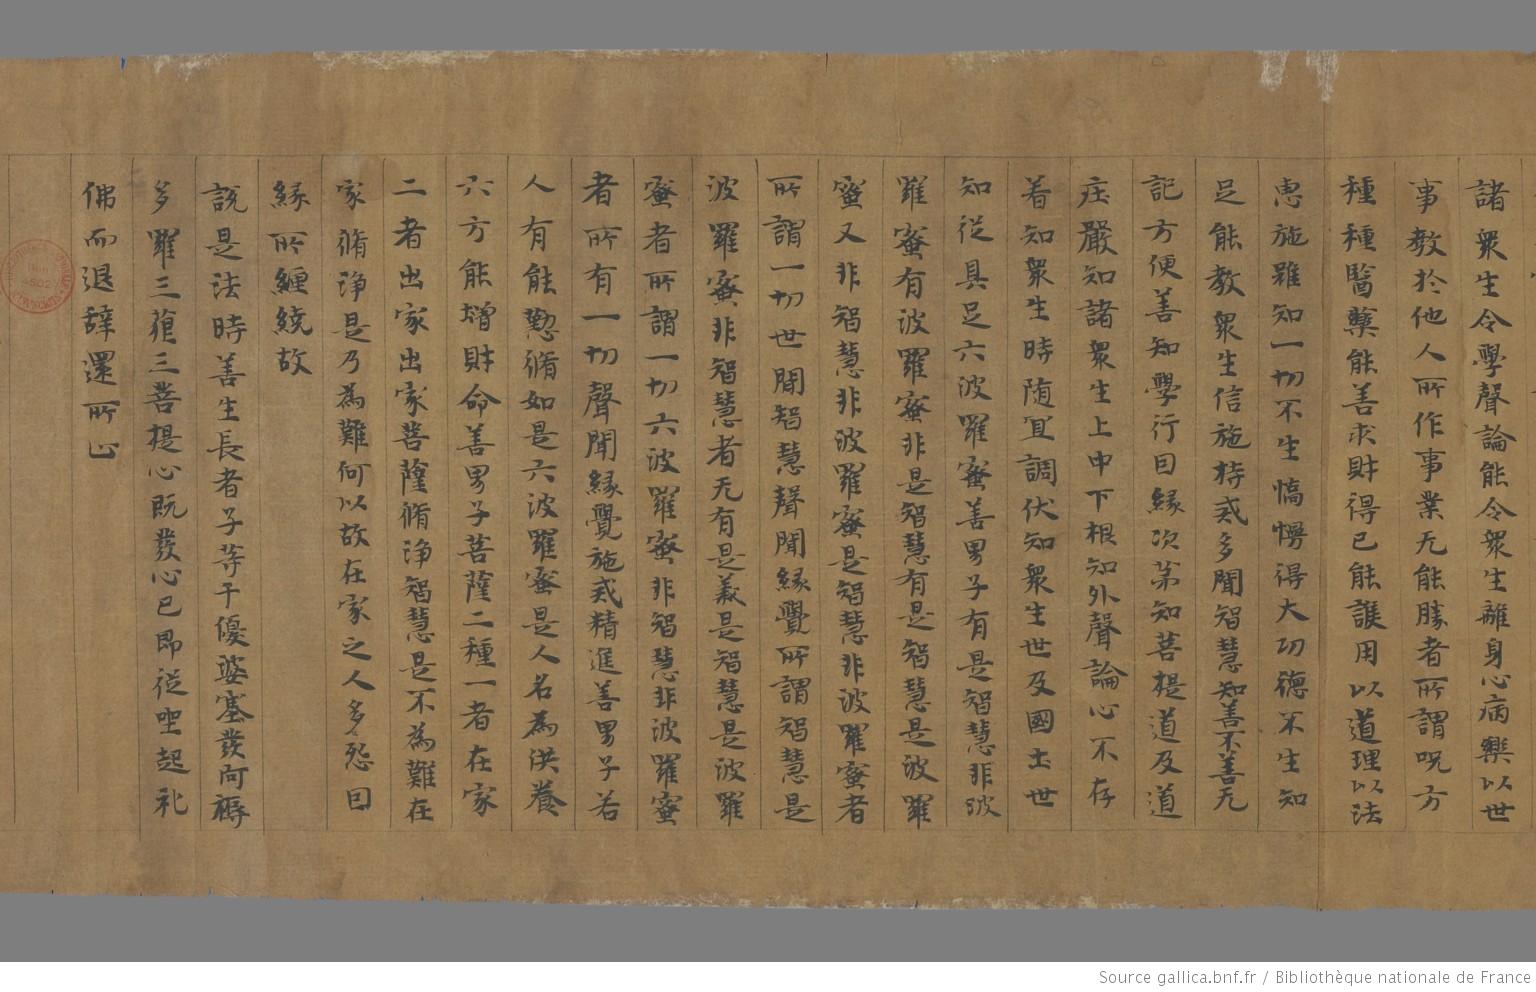 諸衆生令學聲論能令衆生離身心病樂以世
事教於他人所作事業无能勝者所謂呪方
種種醫藥能善求財得已能護用以道理以法
惠施雖知一切不生憍慢得大功德不生知
足能教衆生信施持戒多聞智慧知善不善无
記方便善知學行因緣次第知菩提道及道
莊嚴知諸衆生上中下根知外聲論心不存
着知衆生時随宜調伏知衆生世及國土世
知從具足六波羅蜜善男子有是智慧非波
羅蜜有波羅蜜非是智慧有是智慧是波羅
蜜又非智慧非波羅蜜是智慧非波羅蜜者
所謂一切世間智慧聲聞緣覺所謂智慧是
波羅蜜非智慧者无有是義是智慧是波羅
蜜者所謂一切六波羅蜜非智慧非波羅蜜
者所有一切聲聞緣覺施戒精進善男子若
人有能懃脩如是六波羅蜜是人名為供養
六方能增財命善男子菩薩二種一者在家
二者出家出家菩薩脩淨智慧是不為難在
家脩淨是乃為難何以故在家之人多惡因
緣所纏繞故
說是法時善生長者子等千優婆塞發阿耨
多羅三藐三菩提心既發心已即從坐起礼
佛而退辞還所止
Source gallica.bnf.fr / Bibliothèque nationale de France